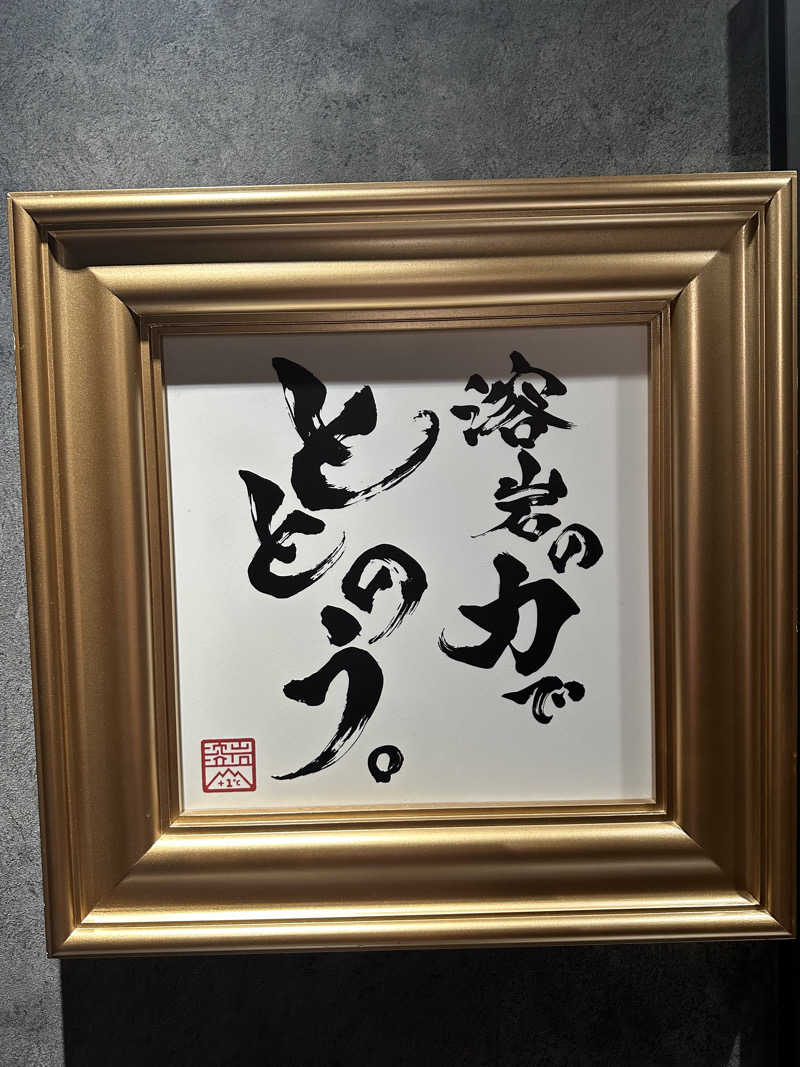 溶岩の力で
ととのう。
溶岩
+1℃